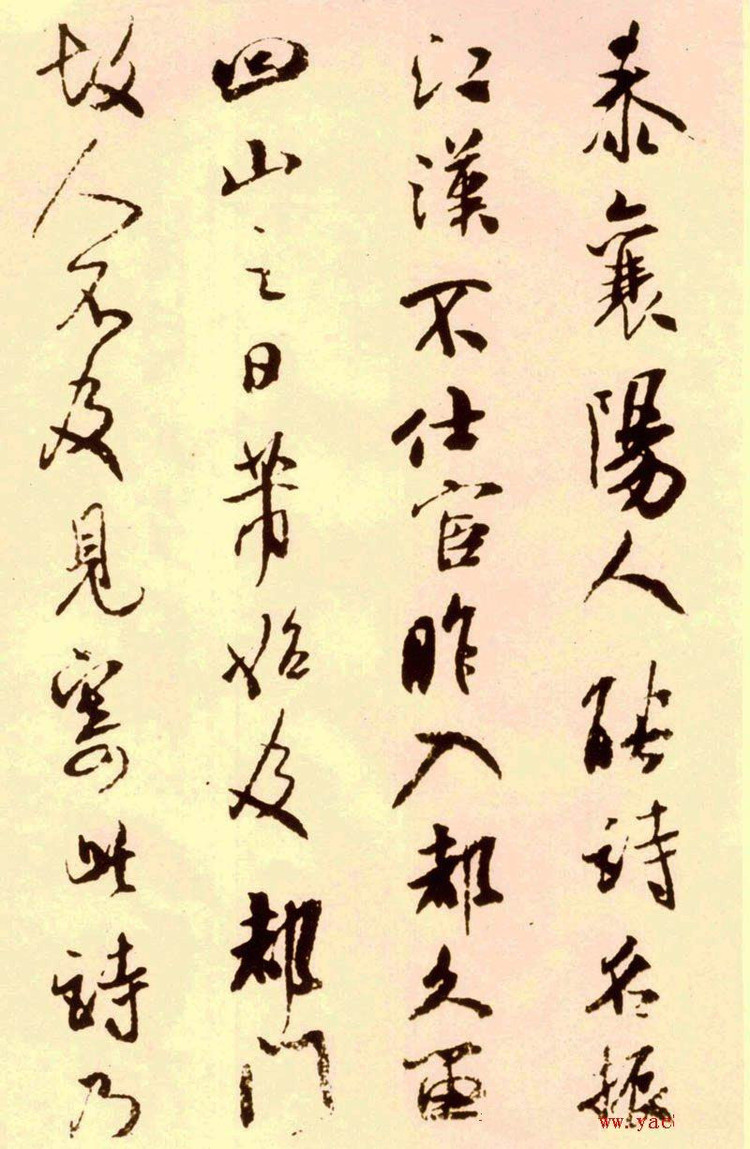 泰襄陽人能詩名振
江漢不仕宦昨入都久留
回山之日芾始及都門
故人不及見寄此詩乃
ww.yae